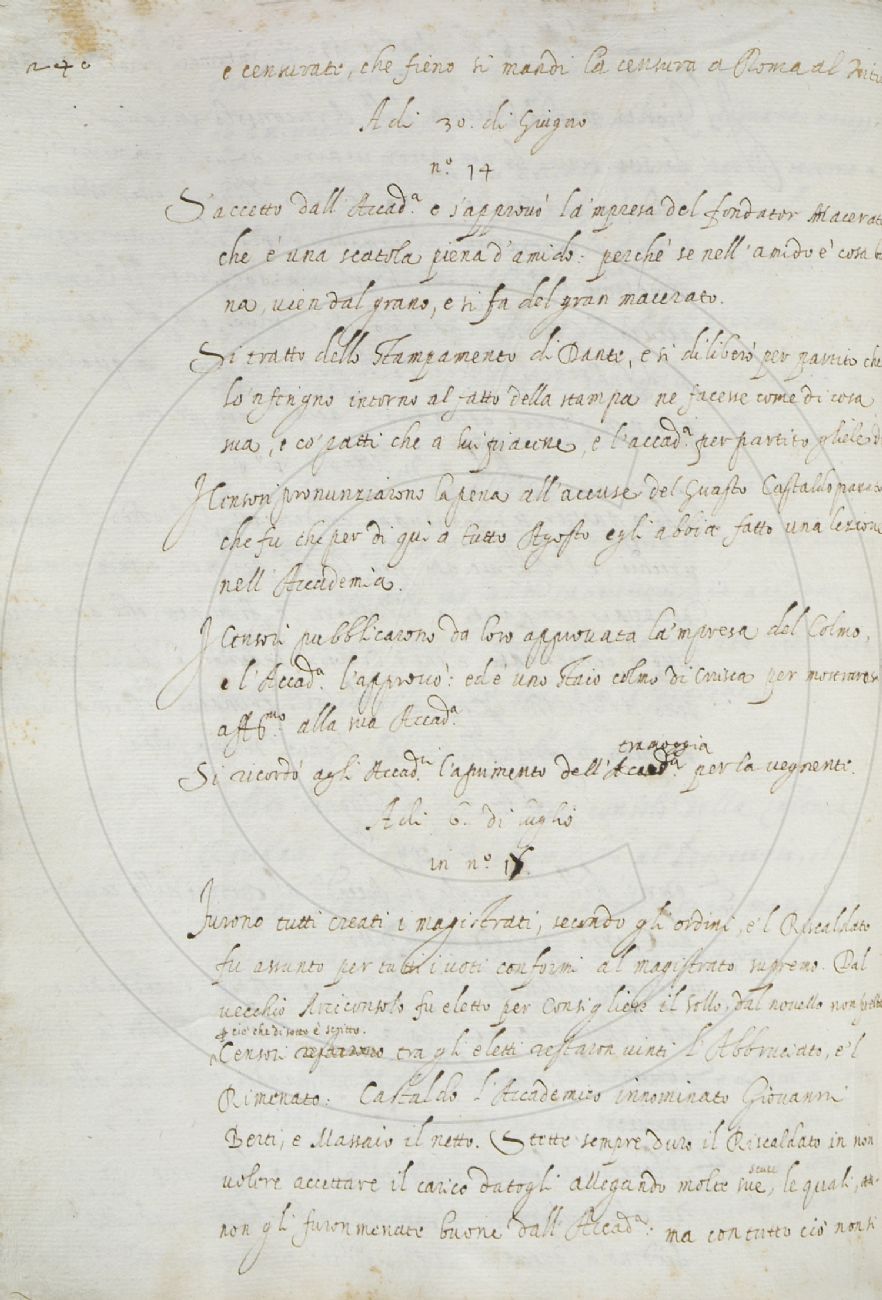 240
e censurate, che fieno si mandi la censura a Roma al
A di 30. di Giugno
n.º 14
S'accetto dall'Accad.ª e s'approuò la'mpresa del fondator Macerat
che è una scatola piena d'amido: perche se nell'amido è cosa b
na, uien dal grano, e si fa del gran macerato.
Si tratto dello stampamento di Dante, e si diliberò per partito che
lo'nferigno intorno al fatto della stampa ne facesse come di cosa
sua, e co' patti che a lui piacere, e l'accad.ª per partito gliele d
I Censori pronunziarono la pena all'accuse del Guasto Castaldo
che fu che per di qui a tutto Agosto egli abbia fatto una lezione
nell'Accademia.
I Censori pubblicarono da loro approuata la'mpresa del Colmo,
e l'Accad.ª l'approuò: ed è uno staio colmo di crusca per mostrare
aff.mo alla sua Accad.ª
tramoggia
Si ricordò agli Accad.ci l'aprimento dell' per la vegnente.
A di 6. di luglio
in n.º
Furono tutti creati i magistrati, secondo gli ordini, e'l Riscaldato
fu assunto per tutti i uoti conformi al magistrato supremo. Dal
uecchio Arciconsolo fu eletto per Consigliere il sollo, dal nouello non
ciò che di sotto è scritto.
Censori restarono tra gli eletti restaron uinti l'Abbruciato, e'l
Rimenato: Castaldo l'Accademico innominato Giouanni
Berti, e Massaio il netto. Stette sempre duro il Riscaldato in non
uolere accettare il carico datogli allegando molte sue scuse, le quali,
non gli furon menate buone dall'Accad.ª: ma con tutto ciò non si